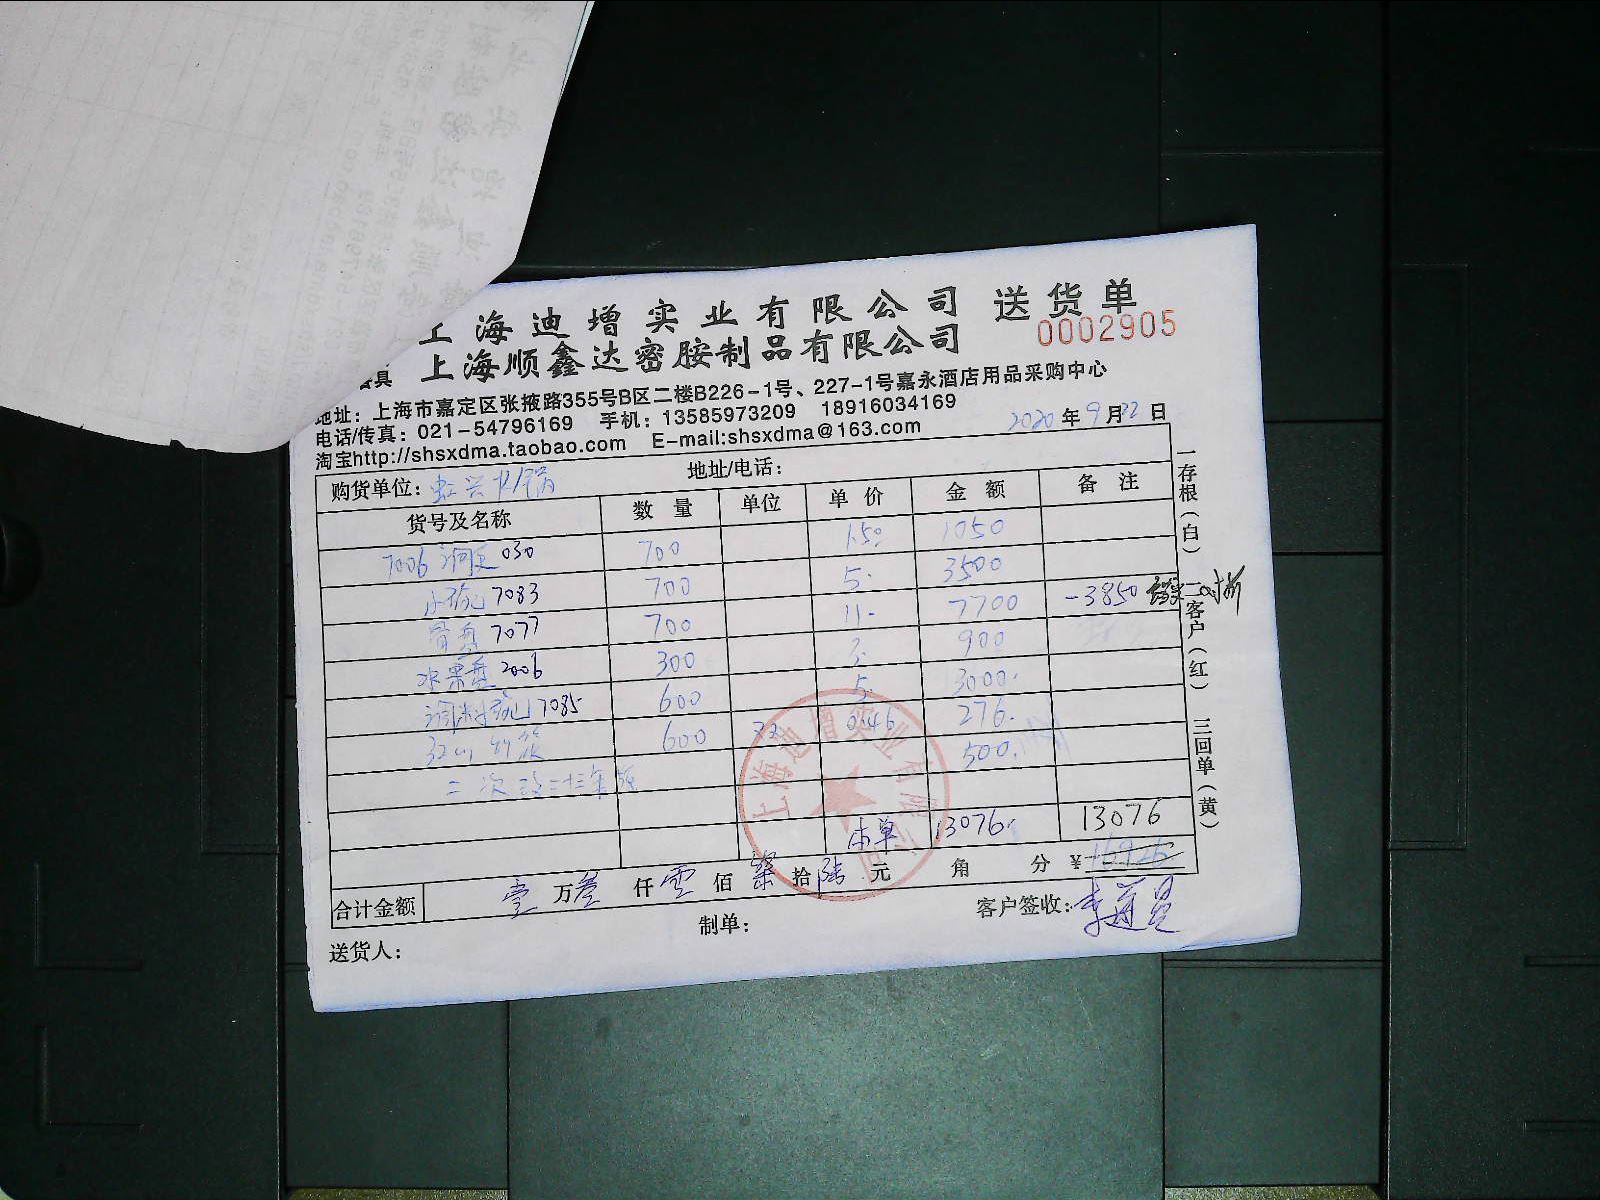 上海迪增实业有限公司 送货单
上海顺鑫达密胺制品有限公司 0002905
具
地址：上海市嘉定区张掖路355号B区二楼B226-1号、227-1号嘉永酒店用品采购中心
电话/传真：021-54796169 手机：13585973209 18916034169
淘宝http://shsxdma.taobao.com E-mail:shsxdma@163.com 2020年9月22日
购货单位： 地址/电话：
货号及名称 数量 单位 单价 金额 备注
7006 030 700 1.50 1050
7083 700 5. 3500
骨盘 7077 700 11- 7700 -3850
水果盘 2006 300 3. 900
调料碗 7085 600 5. 3000.
600 0.46 276.
二次 500.
本单 13076. 13076
合计金额 壹万叁仟零佰柒拾陆元 角 分 ¥16926
送货人： 制单： 客户签收：
一存根（白） 二客户（红） 三回单（黄）
上海迪增实业有限公司